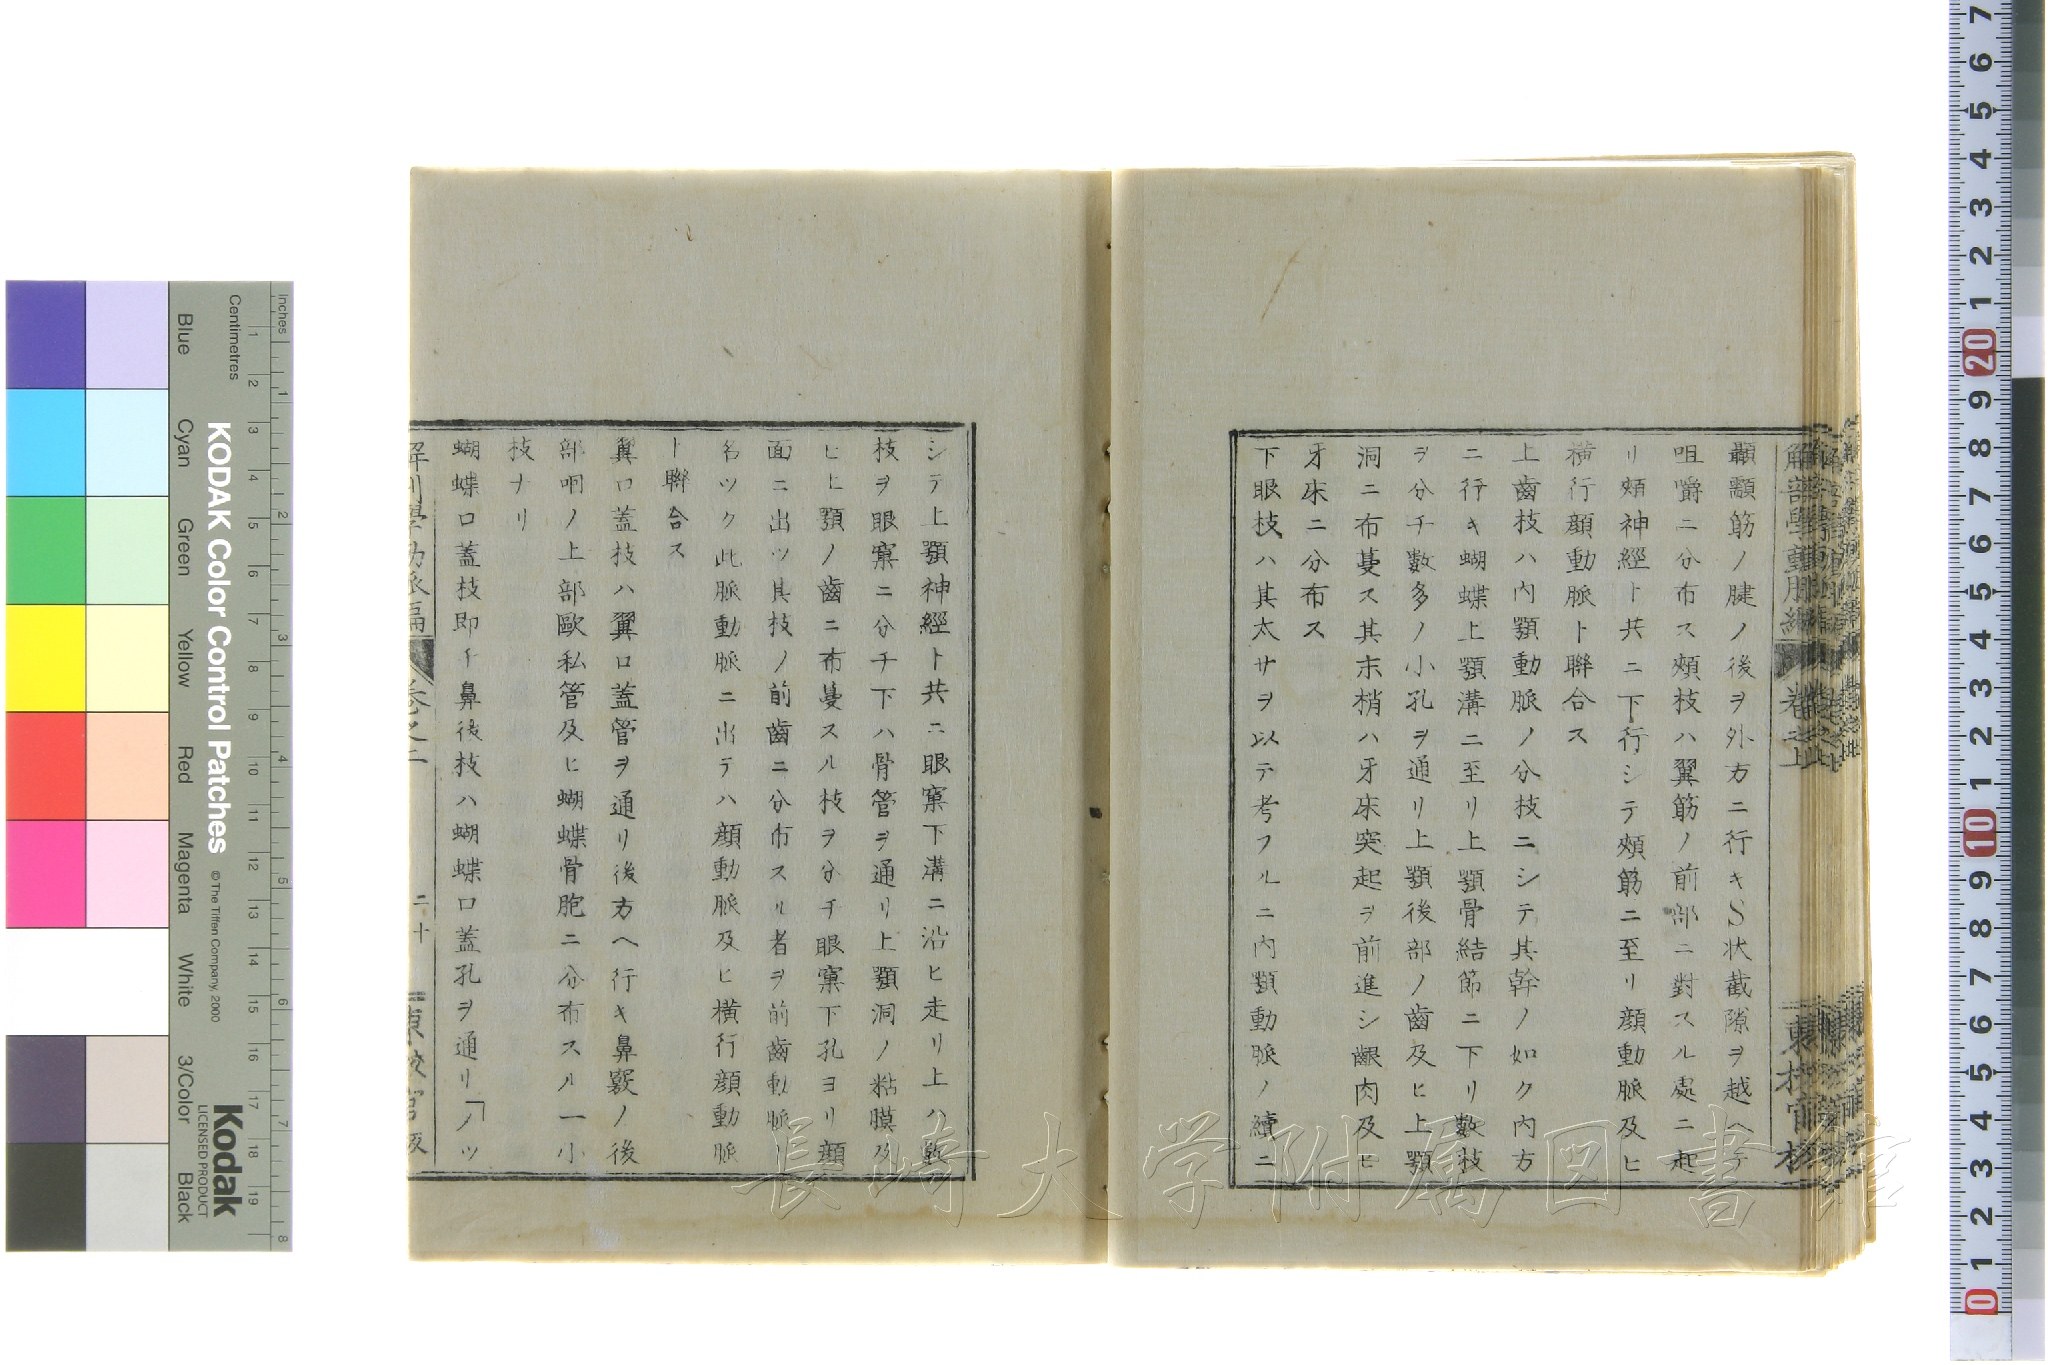 顳顬筋ノ腱ノ後ヲ外方ニ行キS状截隙ヲ越ヘテ
咀嚼ニ分布ス頰枝ハ翼筋ノ前部ニ對スル處ニ起
リ頰神經ト共ニ下行シテ頰筋ニ至リ顔動脈及ヒ
横行顔動脈ト聯合ス
上齒枝ハ内顎動脈ノ分枝ニシテ其幹ノ如ク内方
ニ行キ蝴蝶上顎溝ニ至リ上顎骨結節ニ下リ數枝
ヲ分チ數多ノ小孔ヲ通リ上顎後部ノ齒及ヒ上顎
洞ニ布蔓ス其末梢ハ牙床突起ヲ前進シ齦肉及ヒ
牙床ニ分布ス
下眼枝ハ其太サヲ以テ考フルニ内顎動脈ノ續ニ
シテ上顎神經ト共ニ眼窠下溝ニ沿ヒ走リ上ハ數
枝ヲ眼窠ニ分チ下ハ骨管ヲ通リ上顎洞ノ粘膜及
ヒ上顎ノ齒ニ布蔓スル枝ヲ分チ眼窠下孔ヨリ顔
面ニ出ツ其枝ノ前齒ニ分布スル者ヲ前齒動脈ト
名ツク此脈動脈ニ出テハ顔動脈及ヒ横行顔動脈
ト聯合ス
翼口蓋枝ハ翼口蓋管ヲ通リ後方ヘ行キ鼻竅ノ後
部咽ノ上部歐私管及ヒ蝴蝶骨胞ニ分布スル一小
枝ナリ
蝴蝶口蓋枝即チ鼻後枝ハ蝴蝶口蓋孔ヲ通リ「ノツ
解剖學動脈編 卷之二 二十 東校官版
長崎大学附属図書館
KODAK Color Control Patches
© The Tiffen Company, 2000
Kodak
LICENSED PRODUCT
Inches 1 2 3 4 5 6 7 8
Centimetres 1 2 3 4 5 6 7 8 9 10 11 12 13 14 15 16 17 18 19
Blue Cyan Green Yellow Red Magenta White 3/Color Black
7 6 5 4 3 2 1 20 9 8 7 6 5 4 3 2 1 10 9 8 7 6 5 4 3 2 1 0